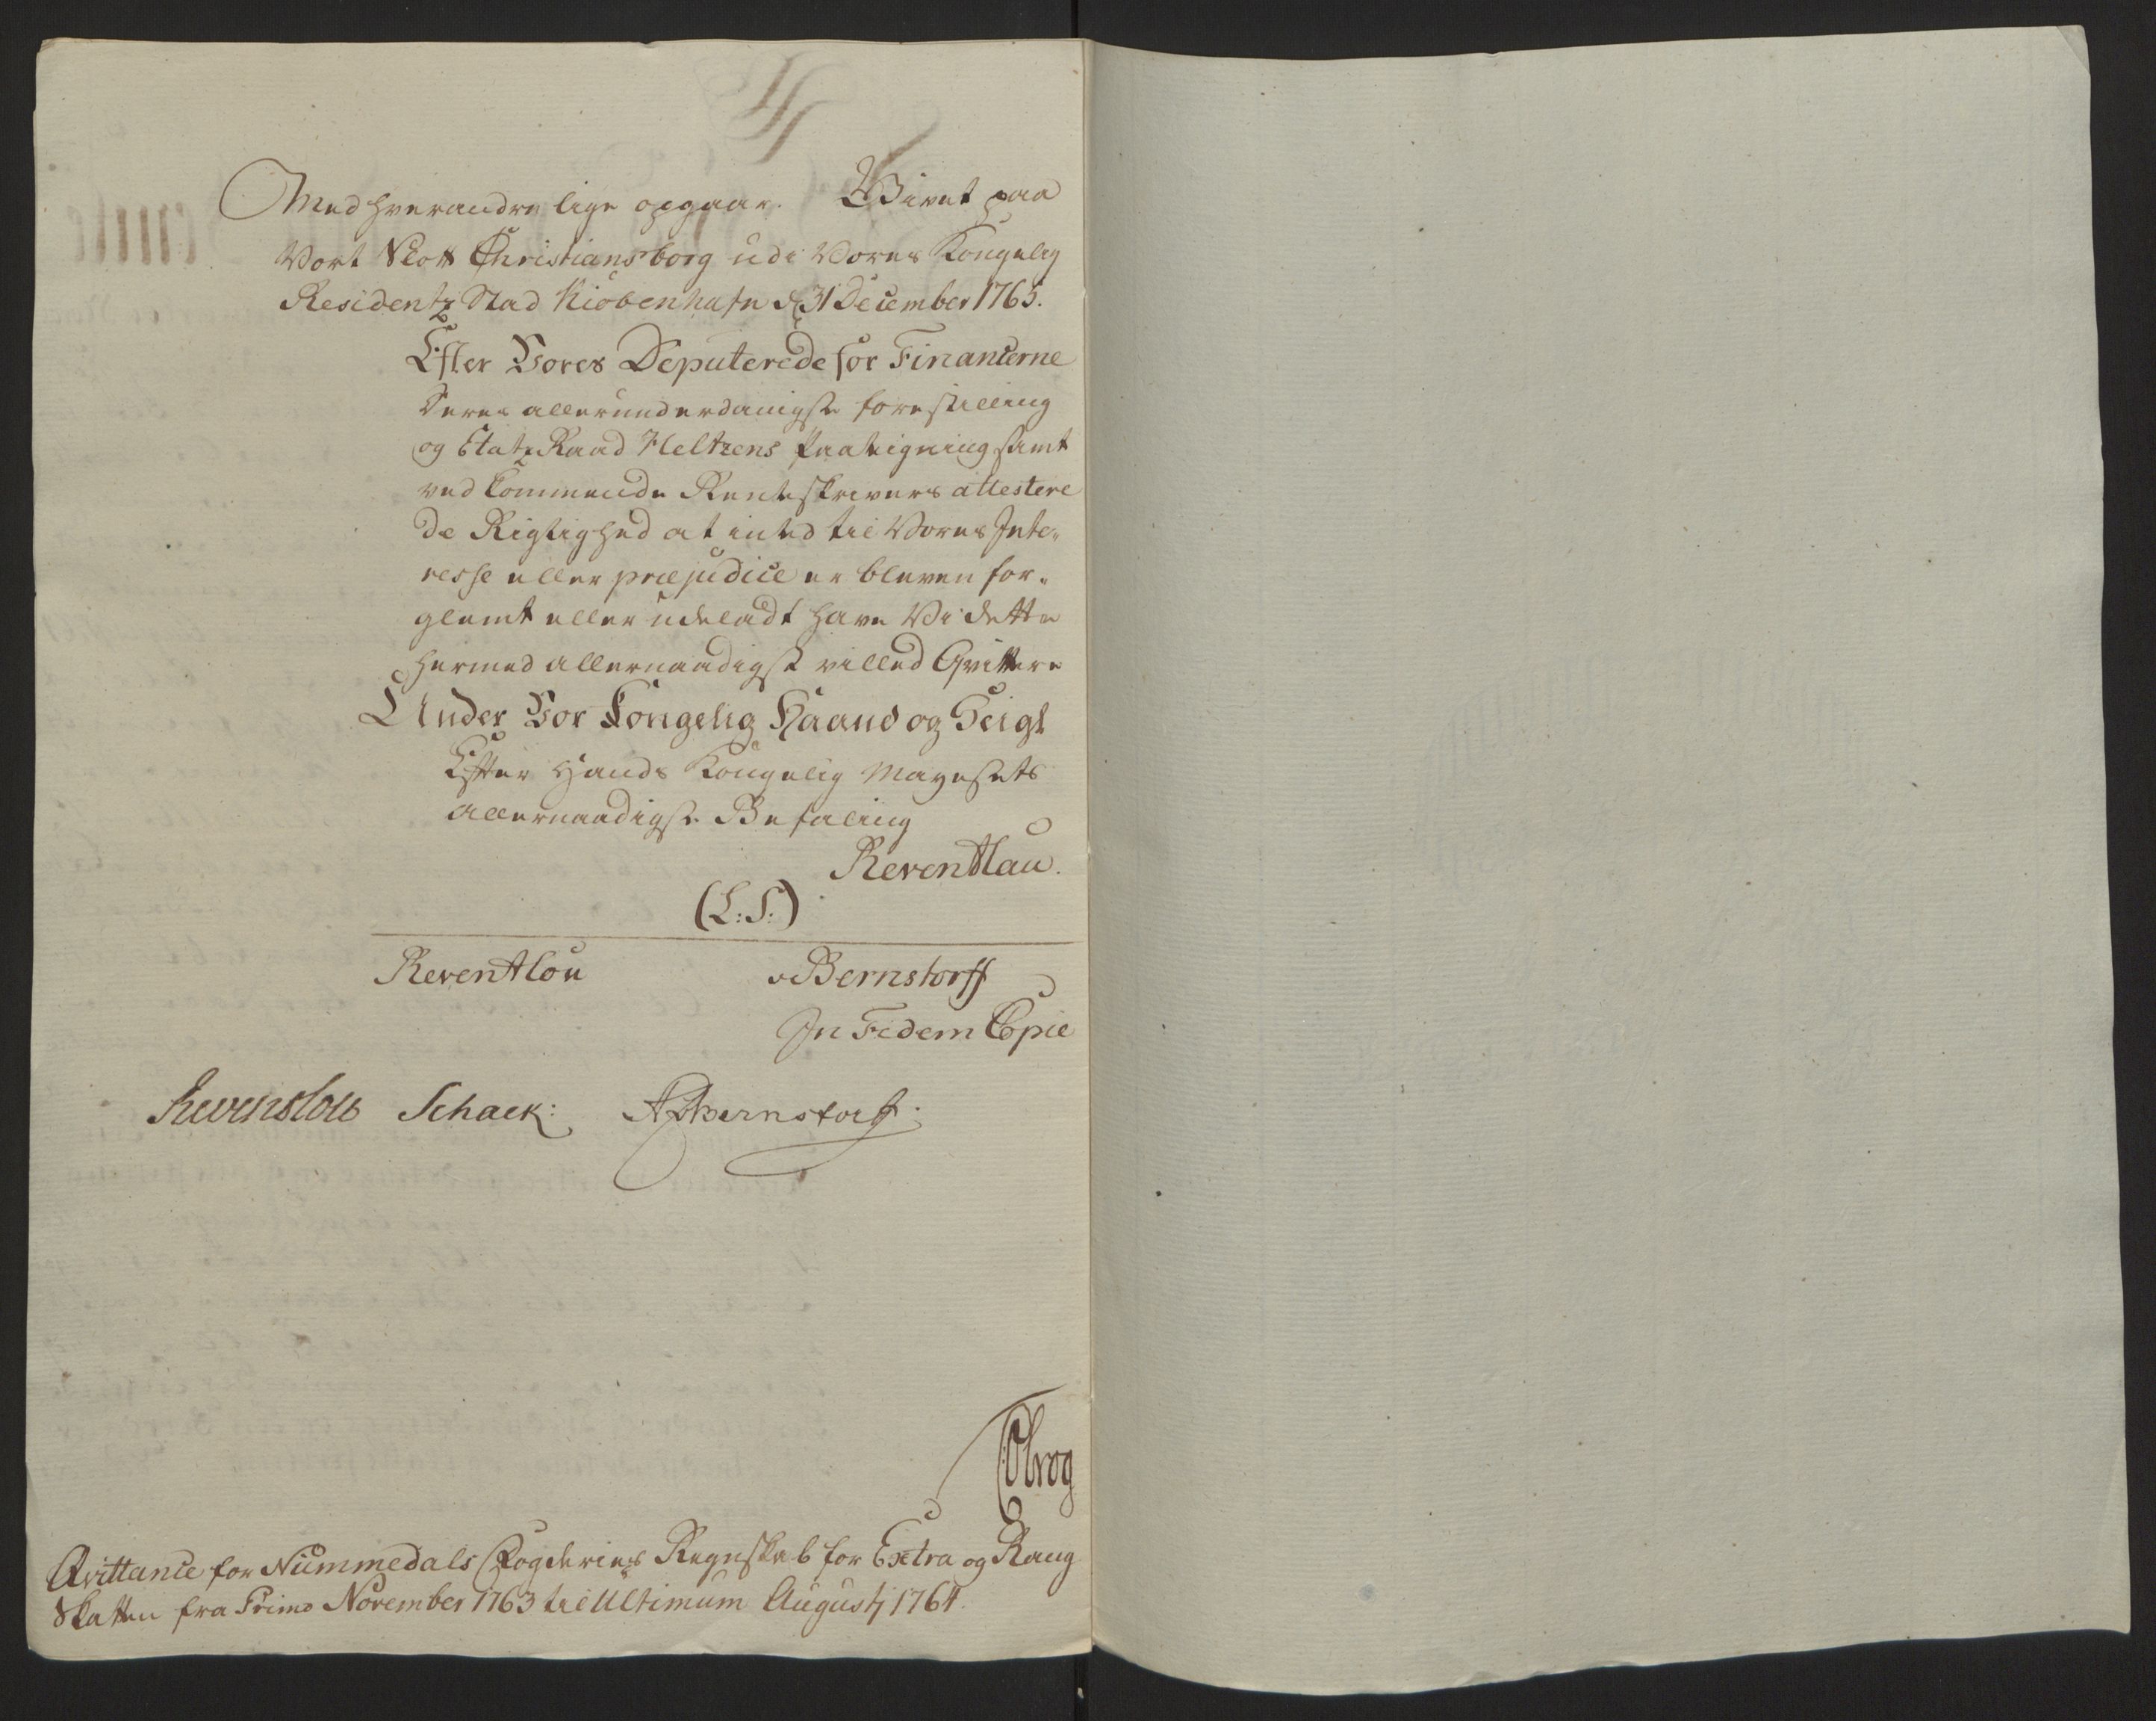 Med hverandre lige opgaar. Givet paa
Vort Slott Christiansborg udi Vores Kongelig
Residentz Stad Kiöbenhafn d 31 December 1765.
Efter Vores Deputerede for Financerne
Deres allerunderdanigste forestilling
og Etatz Raad Heltzens Paategning samt
ved kommende Renteskrivers attestere
de Rigtighed at inted til Vores Inte-
resse eller præjudice er bleven for-
glemt eller udeladt have Vi dette
hermed allernaadigst villed Qvittere
Under Vor Kongelig Haand og Seigl
Efter Hands Kongelig Mayestets
allernaadigste Befaling
Reventlau.
(L:S:)
Reventlou vBernstorff
In Fidem Copiæ
Reventlou Schack: APBernstorff.
Qvittance for Nummedals Fogderies Regnskab for Extra og Rang
Skatten fra Primo November 1763 til Ultimum Augustj 1764.